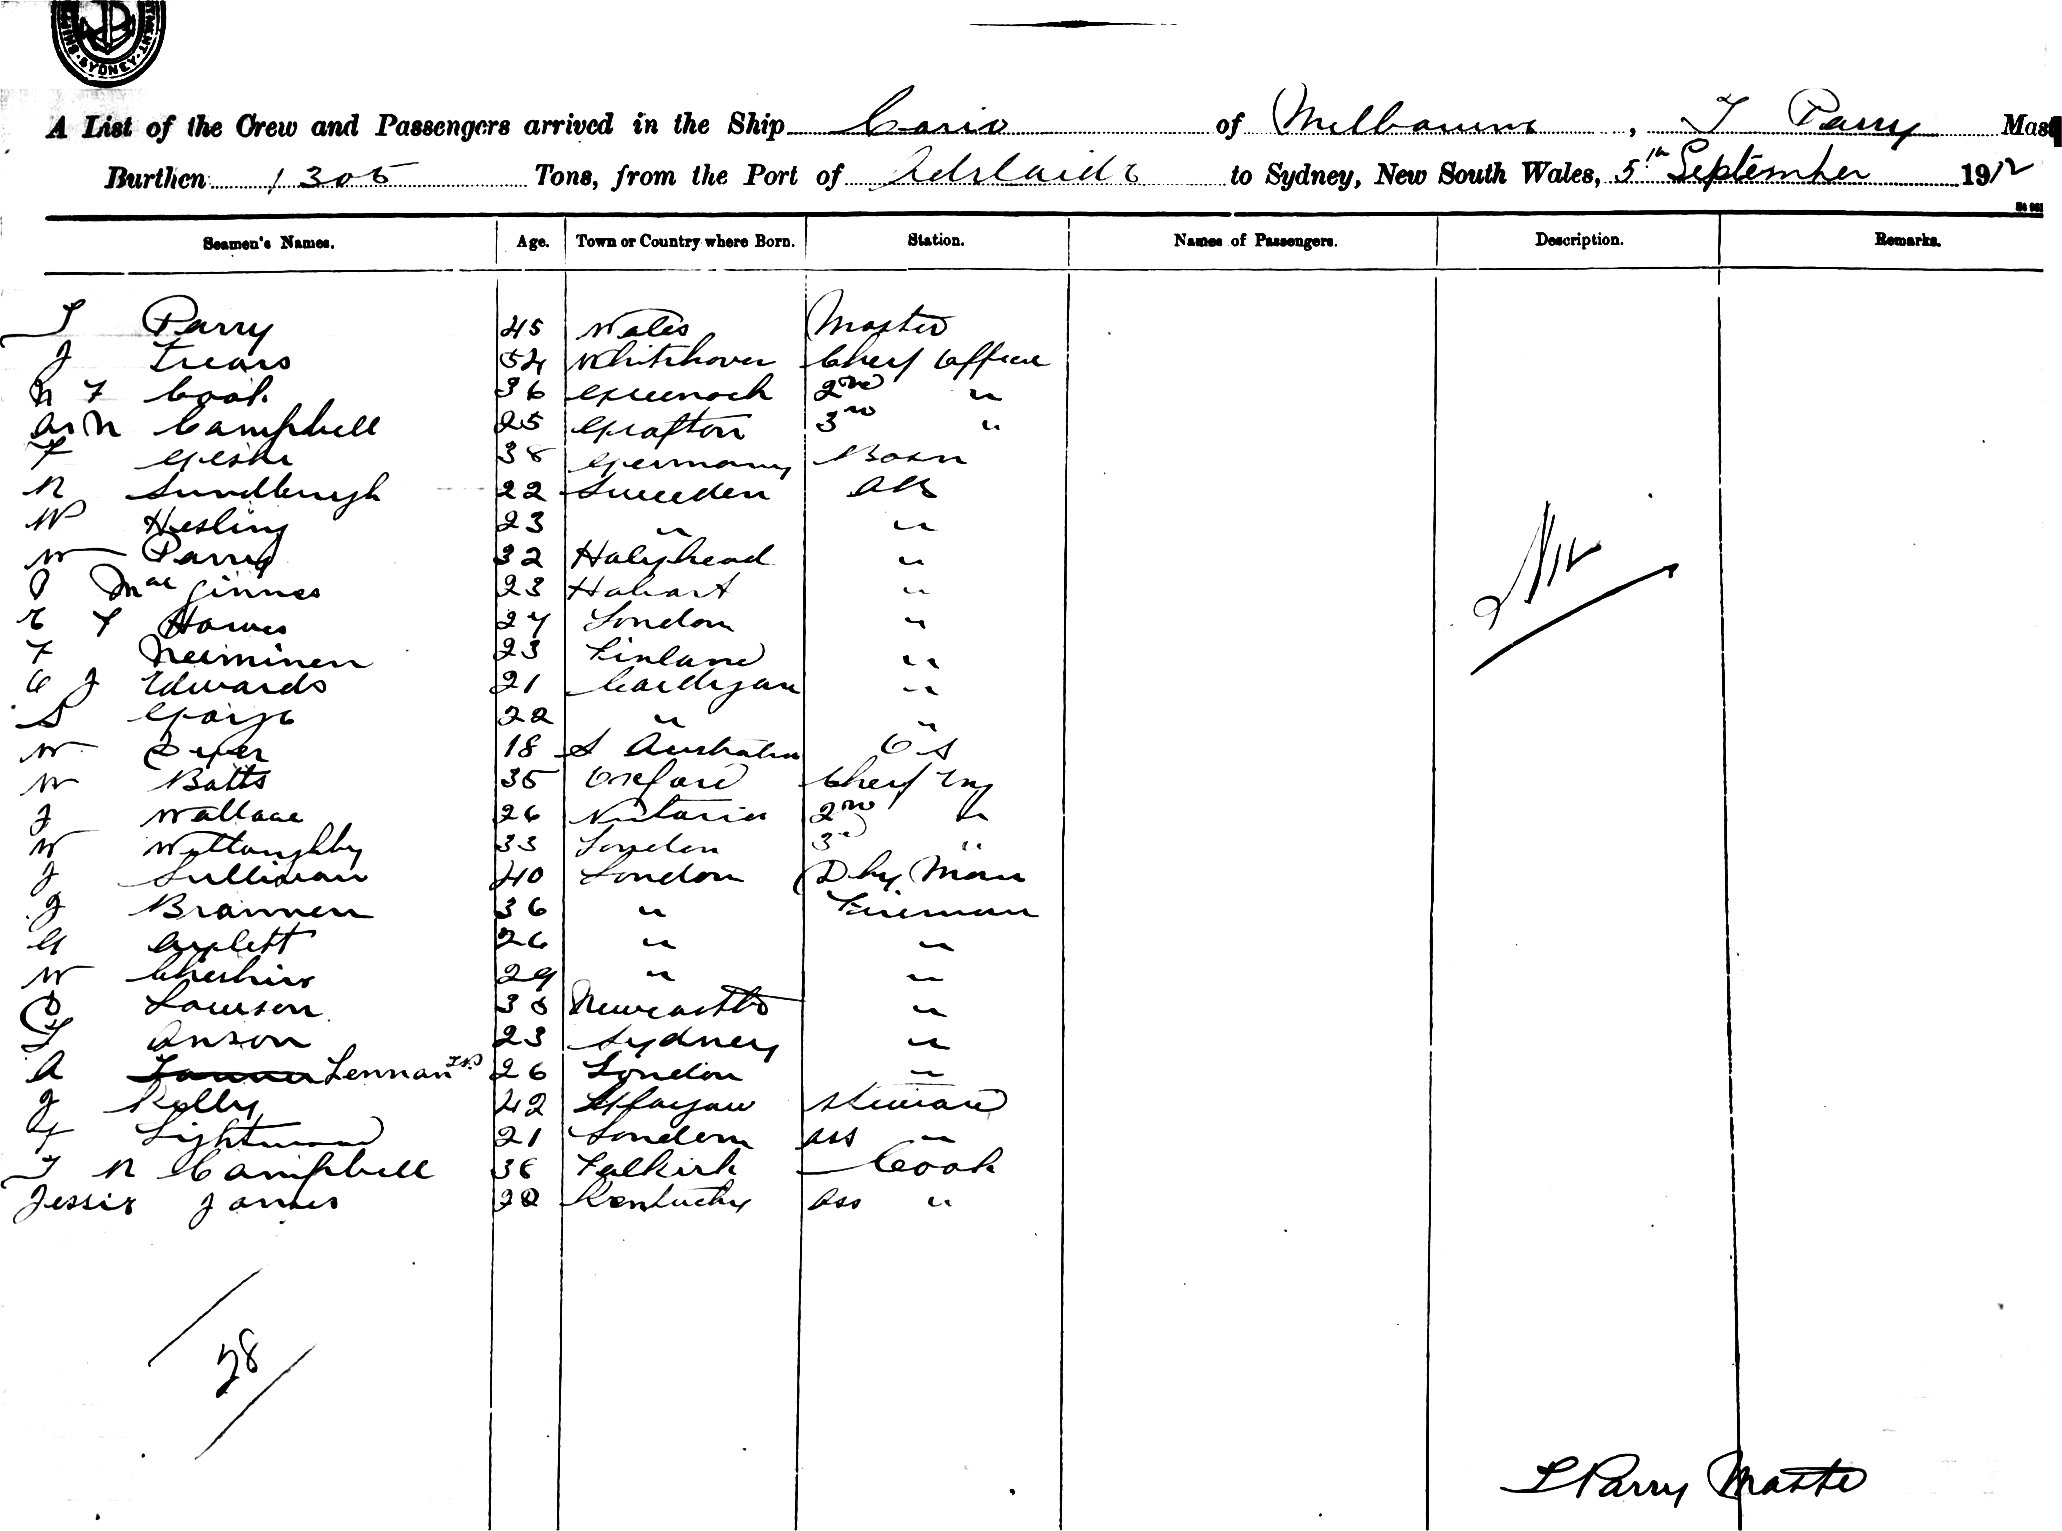 SYDNEY
A List of the Crew and Passengers arrived in the Ship Corio of Melbourne, T Parry Mast
Burthen 1305 Tons, from the Port of Adelaide to Sydney, New South Wales, 5th September 1912
Seamen's Names. Age. Town or Country where Born. Station. Names of Passengers. Description. Remarks.
T Parry 45 Wales Master
J 54 Whitehaven Chief Officer
Cook 36 Greenock 2nd "
Campbell 25 Grafton 3rd "
F 38 Germany Bosn
Sundbergh 22 Sweden AB
W Hesling 23 " "
W Parry 32 Holyhead "
Mac Ginnes 23 Hobart "
E F Hawes 27 London "
F Neiminen 23 Finland "
C J Edwards 21 Cardigan "
S George 22 " "
W 18 S Australia O S
W Batts 35 Oxford Chief Eng
J Wallace 26 Victoria 2nd "
W Willoughby 33 London 3rd "
J Sullivan 40 London Dky Man
J Brannen 36 " Fireman
26 " "
W Cheshire 29 " "
Lawson 38 Newcastle "
Anson 23 Sydney "
A Lennan 26 London "
J Kelly 42 Glasgow Steward
F Lightwood 21 London Ass "
T R Campbell 38 Falkirk Cook
Jessie James 22 Kentucky Ass "
Nil
28
T Parry Master